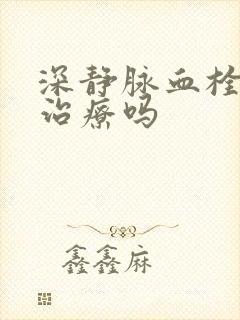 深静脉血栓
治疗吗
鑫鑫麻